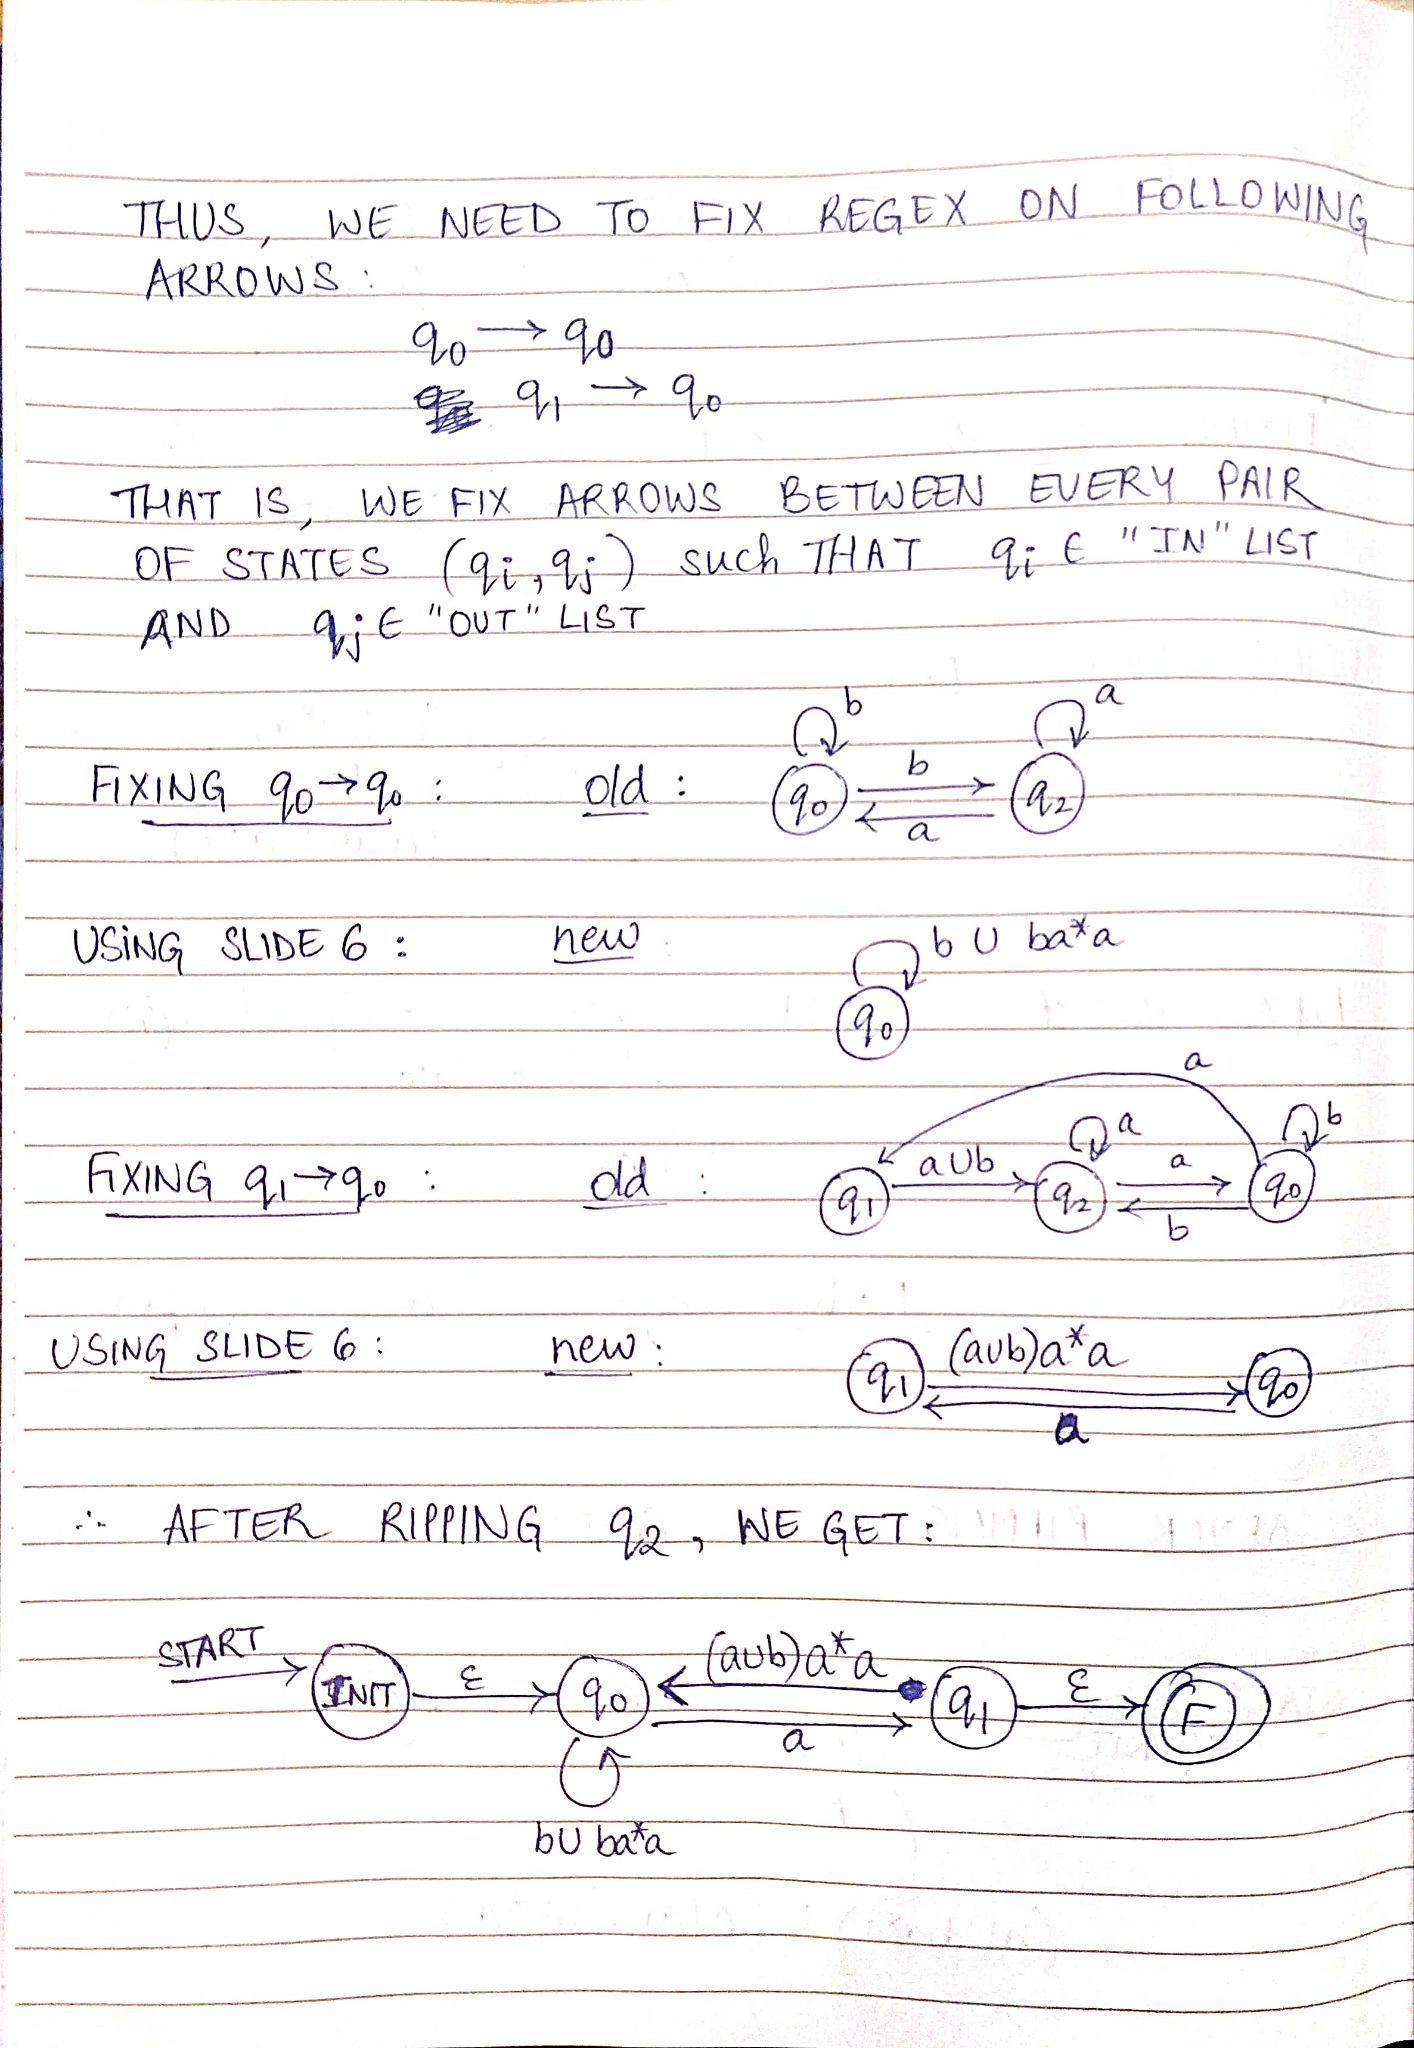 THUS, WE NEED TO FIX REGEX ON FOLLOWING
ARROWS :
q0 → q0
q1 → q0
THAT IS, WE FIX ARROWS BETWEEN EVERY PAIR
OF STATES (qi, qj) such THAT qi ∈ "IN" LIST
AND qj ∈ "OUT" LIST
b a
FIXING q0 → q0 : old : q0 b q2
a
USING SLIDE 6 : new b ∪ ba*a
q0
a
a b
FIXING q1 → q0 : old : q1 a∪b q2 a q0
b
USING SLIDE 6 : new : q1 (a∪b)a*a q0
a
∴ AFTER RIPPING q2, WE GET :
START INIT ε q0 (a∪b)a*a q1 ε F
a
b∪ ba*a